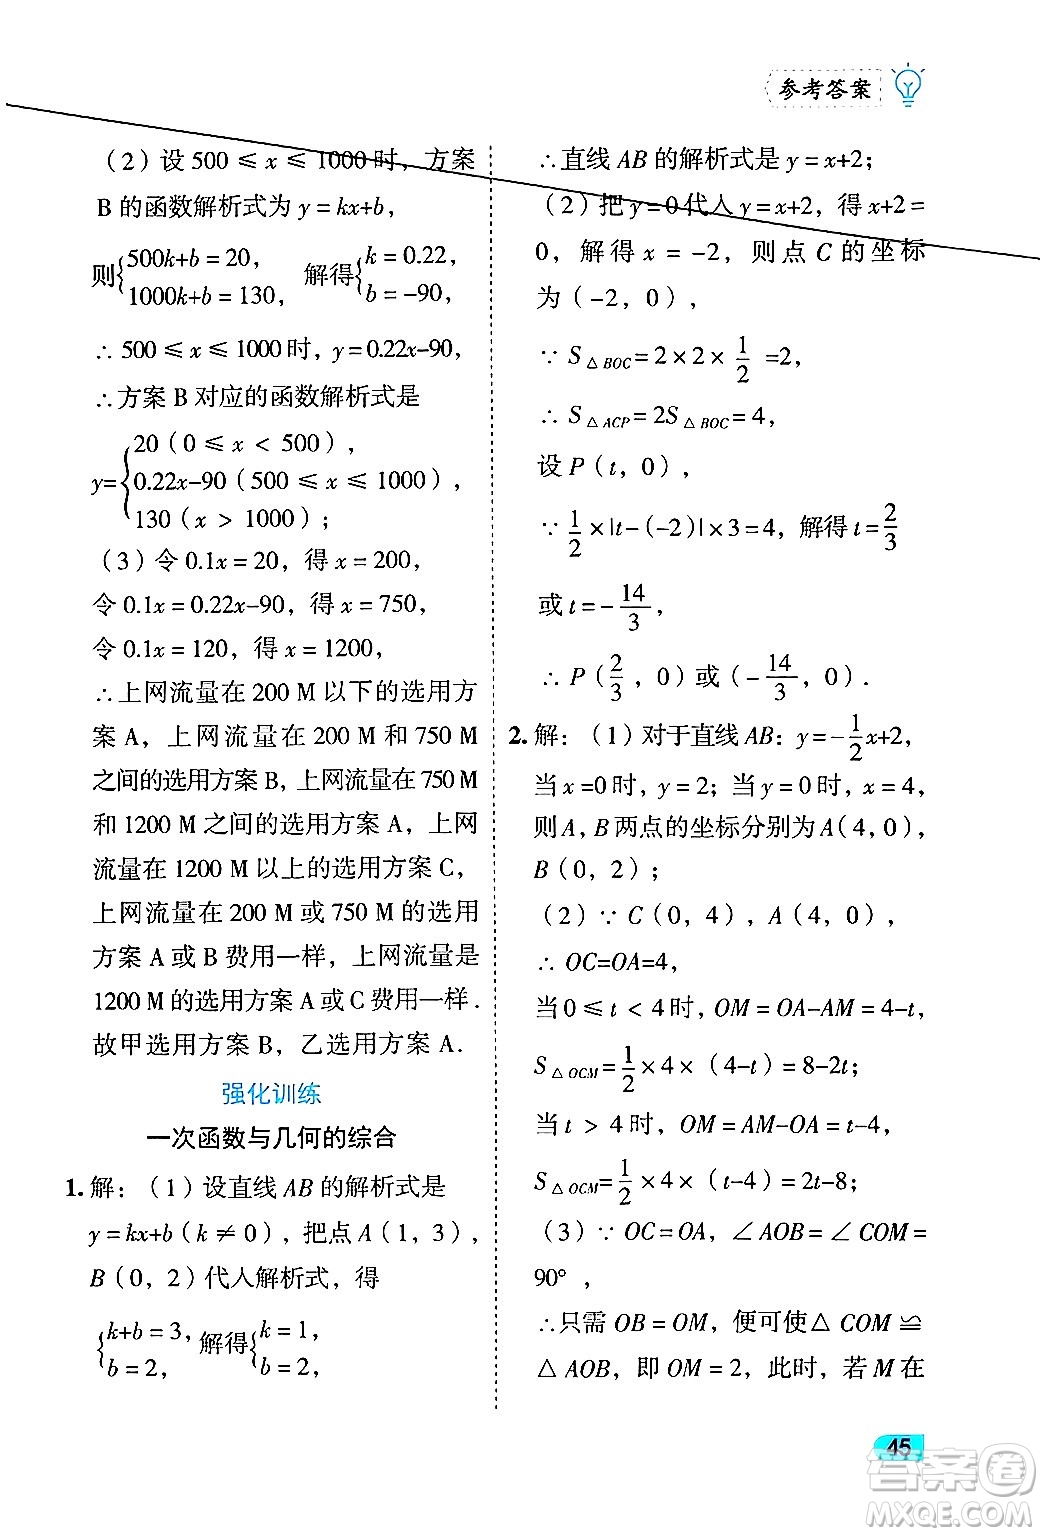 参考答案
（2）设 500 ≤ x ≤ 1000 时，方案
B 的函数解析式为 y = kx+b，
则{500k+b = 20， 1000k+b = 130， 解得{k = 0.22， b = -90，
∴ 500 ≤ x ≤ 1000 时，y = 0.22x-90，
∴方案 B 对应的函数解析式是
y={20（0 ≤ x < 500），
0.22x-90（500 ≤ x ≤ 1000），
130（x > 1000）；
（3）令 0.1x = 20，得 x = 200，
令 0.1x = 0.22x-90，得 x = 750，
令 0.1x = 120，得 x = 1200，
∴上网流量在 200 M 以下的选用方
案 A，上网流量在 200 M 和 750 M
之间的选用方案 B，上网流量在 750 M
和 1200 M 之间的选用方案 A，上网
流量在 1200 M 以上的选用方案 C，
上网流量在 200 M 或 750 M 的选用
方案 A 或 B 费用一样，上网流量是
1200 M 的选用方案 A 或 C 费用一样．
故甲选用方案 B，乙选用方案 A．
强化训练
一次函数与几何的综合
1. 解：（1）设直线 AB 的解析式是
y = kx+b（k ≠ 0），把点 A（1，3），
B（0，2）代人解析式，得
{k+b = 3， b = 2， 解得{k = 1， b = 2，
∴直线 AB 的解析式是 y = x+2；
（2）把 y = 0 代人 y = x+2，得 x+2 =
0，解得 x = -2，则点 C 的坐标
为（-2，0），
∵ S△BOC = 2 × 2 × 1/2 =2，
∴ S△ACP = 2S△BOC = 4，
设 P（t，0），
∵ 1/2 × |t-(-2)| × 3 = 4，解得 t = 2/3
或 t = -14/3，
∴ P（2/3，0）或（-14/3，0）．
2. 解：（1）对于直线 AB：y = -1/2x+2，
当 x =0 时，y = 2；当 y = 0 时，x = 4，
则 A，B 两点的坐标分别为 A（4，0），
B（0，2）；
（2）∵ C（0，4），A（4，0），
∴ OC=OA=4，
当 0 ≤ t < 4 时，OM = OA-AM = 4-t，
S△OCM = 1/2 × 4 ×（4-t）= 8-2t；
当 t > 4 时，OM = AM-OA = t-4，
S△OCM = 1/2 × 4 ×（t-4）= 2t-8；
（3）∵ OC = OA，∠ AOB = ∠ COM =
90°，
∴只需 OB = OM，便可使△ COM ≌
△ AOB，即 OM = 2，此时，若 M 在
45
答案圈
MXQE.COM